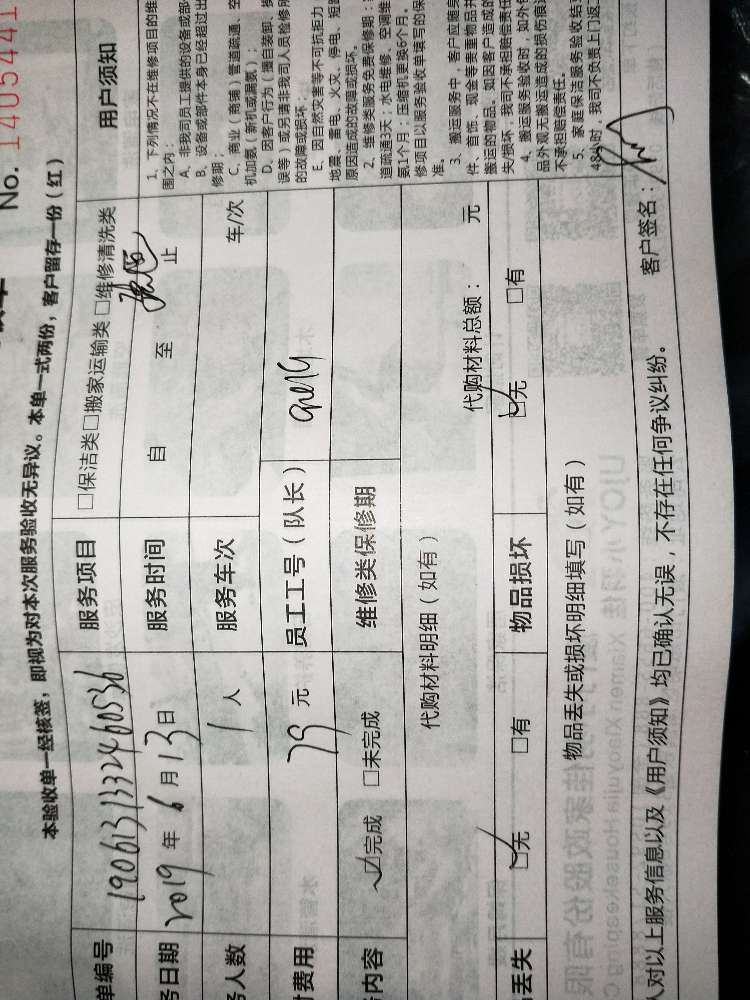 No. 1405441
本验收单一经核签，即视为对本次服务验收无异议。本单一式两份，客户留存一份（红）
单编号 190613133246053 服务项目 □保洁类□搬家运输类□维修清洗类
务日期 2019 年 6 月 13 日 服务时间 自 至 止
务人数 1 人 服务车次 车/次
付费用 79 元 员工工号（队长）
务内容 ☑完成 □未完成 维修类保修期
代购材料明细（如有） 代购材料总额： 元
丢失 ☑无 □有 物品损坏 ☑无 □有
物品丢失或损坏明细填写（如有）
人对以上服务信息以及《用户须知》均已确认无误，不存在任何争议纠纷。 客户签名：
用户须知
1、下列情况不在维修项目的维
围之内：
A、非我司员工提供的设备或部
B、设备或部件本身已经超过出
修期；
C、商业（商铺）管道疏通、空
机加氨（新机或漏氨）；
D、因客户行为（擅自装卸、
误等）或另请非我司人员检修
的故障或损坏；
E、因自然灾害等不可抗拒力
地震、雷电、火灾、停电、短
原因造成的故障或损坏。
2、维修类服务免费保修期：
道疏通3天；水电维修、空调维
氨1个月；压缩机更换6个月。
修项目以服务验收单填写的保
准。
3、搬运服务中，客户应随身
件、首饰、现金等贵重物品
搬运的物品。如因客户造成的
失/损坏，我司不承担赔偿责任
4、搬运服务验收时，如外包
品外观无搬运造成的损伤痕
不承担赔偿责任。
5、家庭保洁服务验收结
48小时，我司不负责上门返工